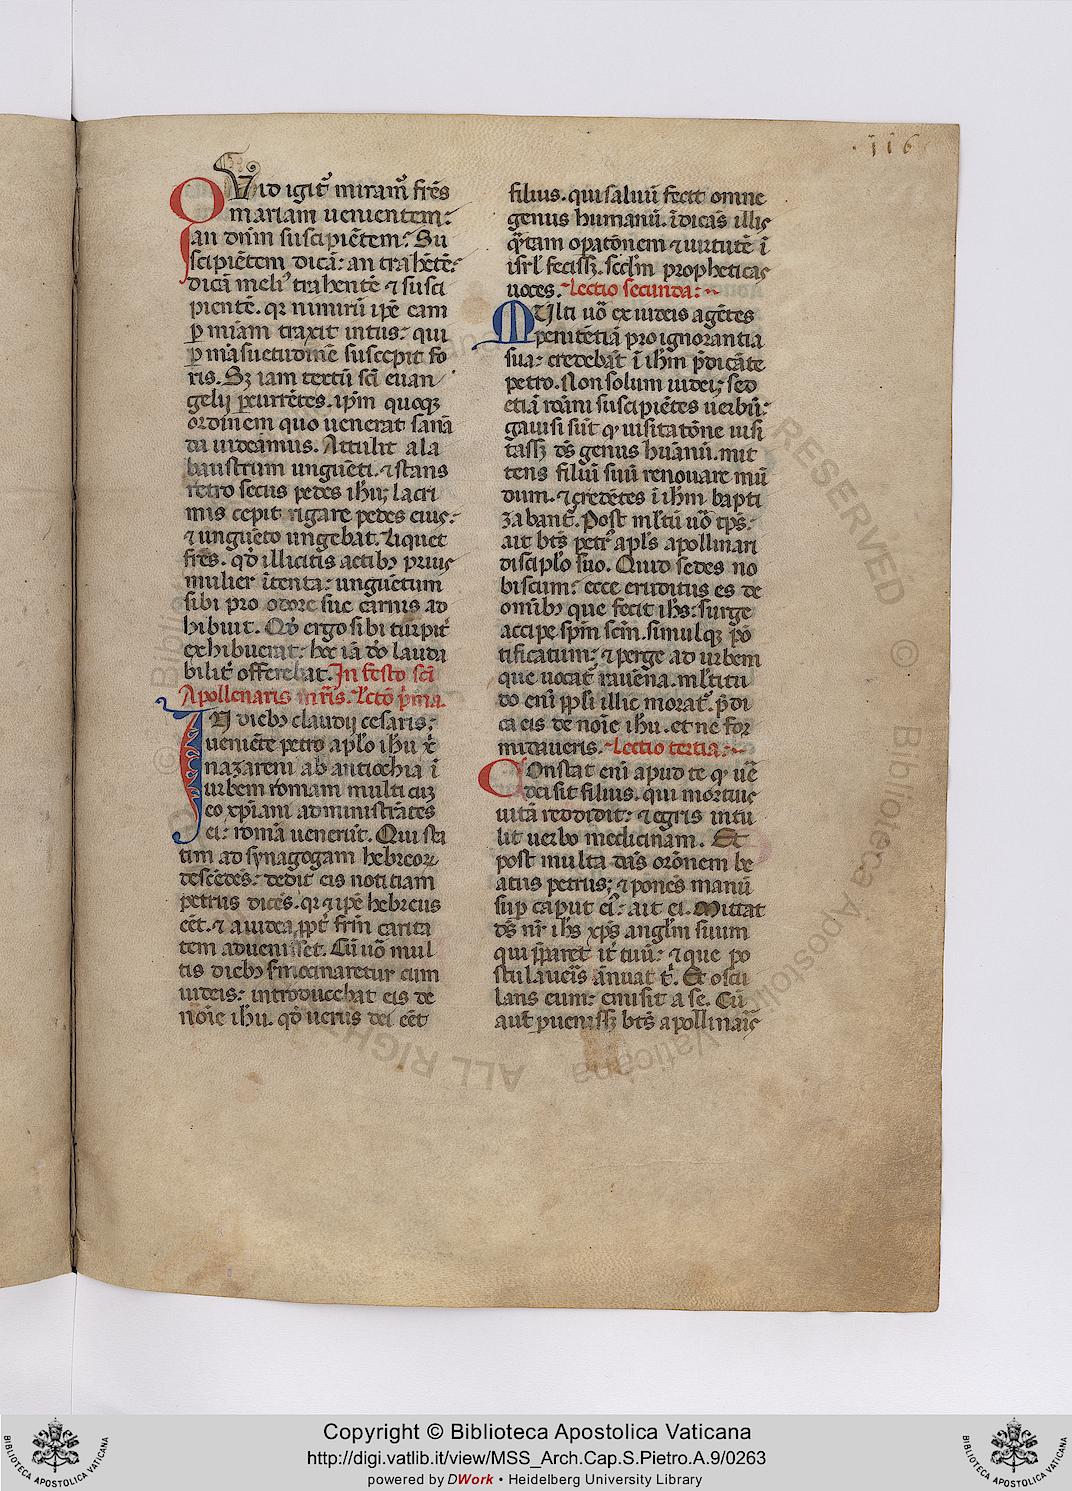 116
QVid igit᷑ miram᷑ fr̄es
mariam uenientem:
an dn̄m suscipiētem: Su
scipiētem dicā: an trahētē:
dicā meli᷒ trahentē ⁊ susci
pientē. qꝛ nimirū ip̄e eam
ꝑ mīam traxit intus: qui
ꝑ māsuetudinē suscepit fo
ris. Sꝫ iam tertii sc̄i euan
gelij ꝑcurrētes. ip̄m quoqꝫ
ordinem quo uenerat sanā
da uideamus. Attulit ala
baustrum unguēti. ⁊ stans
retro secus pedes ihu; lacri
mis cepit rigare pedes eius:
⁊ unguēto ungebat. Liquet
fr̄es. qd̄ illicitis actibꝫ prius
mulier ītenta: unguētum
sibi pro odore sue carnis ad
hibuit. Qd̄ ergo sibi turpit᷑
exhibuerat: hoc iā dō lauda
bilit᷑ offerebat. In festo sc̄i
Apollenaris m̄ris. Lectō p̄ma.
IN diebꝫ claudij cesaris:
ueniēte petro aplo ihu xp̄
nazareni ab antiochia ī
urbem romam multi cuꝫ
eo xp̄iani administrātes
ei: romā uenerūt. Qui sta
tim ad synagogam hebreoꝝ
descēdēs: dedit eis notitiam
petrus dicēs. qꝛ ⁊ ip̄e hebreus
eēt. ⁊ a iudea ꝓpt̄ frm̄ carita
tem aduenisset. Cū uō mul
tis diebꝫ s̄mocinaretur cum
iudeis: introducebat eis de
noīe ihu. qd̄ uerus dei eēt
filius. qui saluū fecit omne
genus humanū. īdicās illis
q̄tam oꝑatōnem ⁊ uirtutē ī
isrl̄ fecissꝫ. scdm̄ propheticas
uoces. Lectio secunda:
MUlti uō ex iudeis agētes
penitētiā pro ignorantia
sua: credebāt ī ihm̄ p̄dicāte
petro. Non solum iudei; sed
etiā romāi suscipiētes uerbū:
gauisi sūt qꝛ uisitatōne uisi
tassꝫ ds̄ genus huānū. mit
tens filiū suū renouare mū
dum. ⁊ credētes ī ihm̄ bapti
zabant᷑. Post mltū uō tp̄s:
ait bt̄s petr᷒ apls apollinari
disciplo suo. Quid sedes no
biscum: ecce eruditus es de
omībꝫ que fecit ihs: surge
accipe sp̄m scm̄. simulqꝫ pō
tificatum; ⁊ perge ad urbem
que uocat᷑ rauēna. mltitu
do enī ppli illic morat᷑. p̄di
ca eis de noīe ihu. et ne for
midaueris. Lectio tertia:
COnstat enī apud te qꝛ ue᷑
dei sit filius. qui mortuis
uitā reddidit: ⁊ egris intu
lit uerbo medicinam. Et
post multa dās orōnem be
atus petrus; ⁊ ponēs manū
suꝑ caput ei᷒: ait ei. Mittat
ds̄ nr̄ ihs xp̄s anglm̄ suum
qui p̄paret it᷑ tuū: ⁊ que po
stulaueīs ānuat t̄. Et oscu
lans eum: emisit a se. Cū
aut̄ puenissꝫ bt̄s apollinaīs
Copyright © Biblioteca Apostolica Vaticana
http://digi.vatlib.it/view/MSS_Arch.Cap.S.Pietro.A.9/0263
powered by DWork • Heidelberg University Library